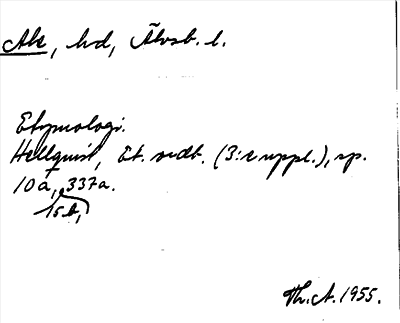 Ale, hd, Älvsb. l.
Etymologi.
Hellquist, Et. ordb. (3:e uppl.), sp.
10a, 337a.
15b,
Th. A. 1955.